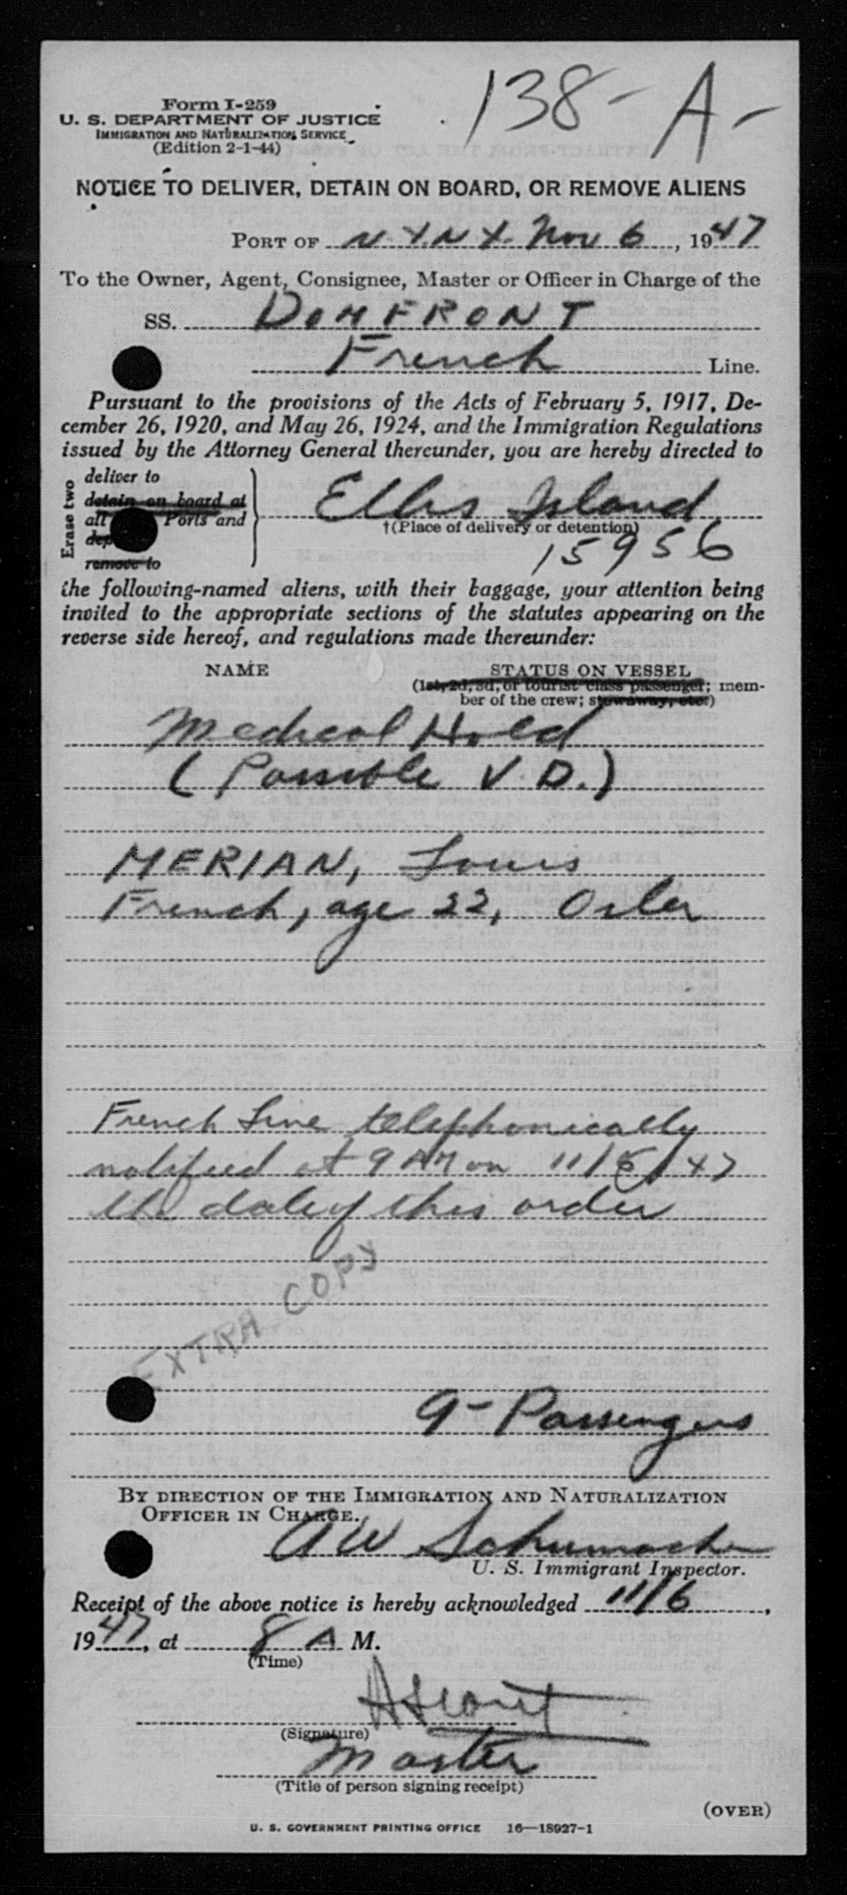 138-A-
Form I-259
U. S. DEPARTMENT OF JUSTICE
IMMIGRATION AND NATURALIZATION SERVICE
(Edition 2-1-44)
NOTICE TO DELIVER, DETAIN ON BOARD, OR REMOVE ALIENS
PORT OF N.Y.N.Y. Nov 6, 1947
To the Owner, Agent, Consignee, Master or Officer in Charge of the
SS. DOMFRONT
French Line.
Pursuant to the provisions of the Acts of February 5, 1917, De-
cember 26, 1920, and May 26, 1924, and the Immigration Regulations
issued by the Attorney General thereunder, you are hereby directed to
Erase two
deliver to
detain on board at
all Ports and
remove to
Ellis Island
†(Place of delivery or detention)
15956
the following-named aliens, with their baggage, your attention being
invited to the appropriate sections of the statutes appearing on the
reverse side hereof, and regulations made thereunder:
NAME STATUS ON VESSEL
(1st, 2d, 3d, or tourist class passenger; mem-
ber of the crew; stowaway, etc.)
Medical Hold
(Possible V.D.)
MERIAN, Louis
French, age 22, Oiler
French Line telephonically
notified at 9 AM on 11/6/47
the date of this order
EXTRA COPY
9- Passengers
BY DIRECTION OF THE IMMIGRATION AND NATURALIZATION
OFFICER IN CHARGE.
AW Schumacher
U. S. Immigrant Inspector.
Receipt of the above notice is hereby acknowledged 11/6,
1947, at 8 A M.
(Time)
(Signature)
Master
(Title of person signing receipt)
(OVER)
U. S. GOVERNMENT PRINTING OFFICE 16—18927-1